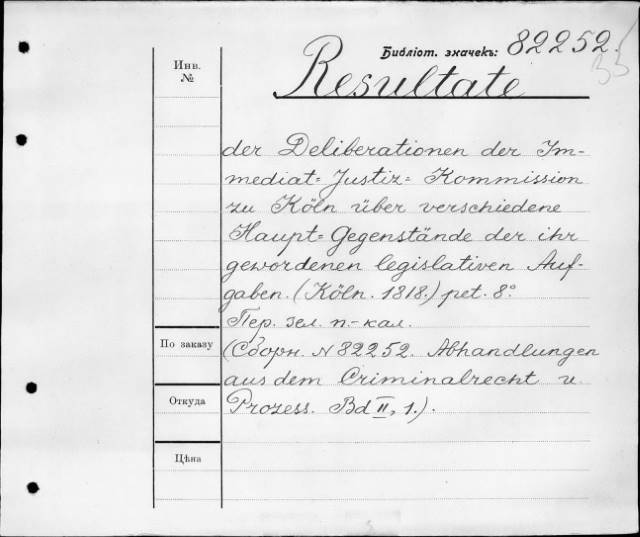 Библіот. значекъ: 82252.
35
Инв.
№
Resultate
der Deliberationen der Im-
mediat= Justiz= Kommission
zu Köln über verschiedene
Haupt= Gegenstände der ihr
gewordenen legislativen Auf-
gaben. (Köln. 1818.) pet. 8.°
Пер. зел. п.-кал.
По заказу
(Сборн. N 82252. Abhandlungen
aus dem Criminalrecht u.
Откуда
Prozess. Bd II, 1.).
Цѣна